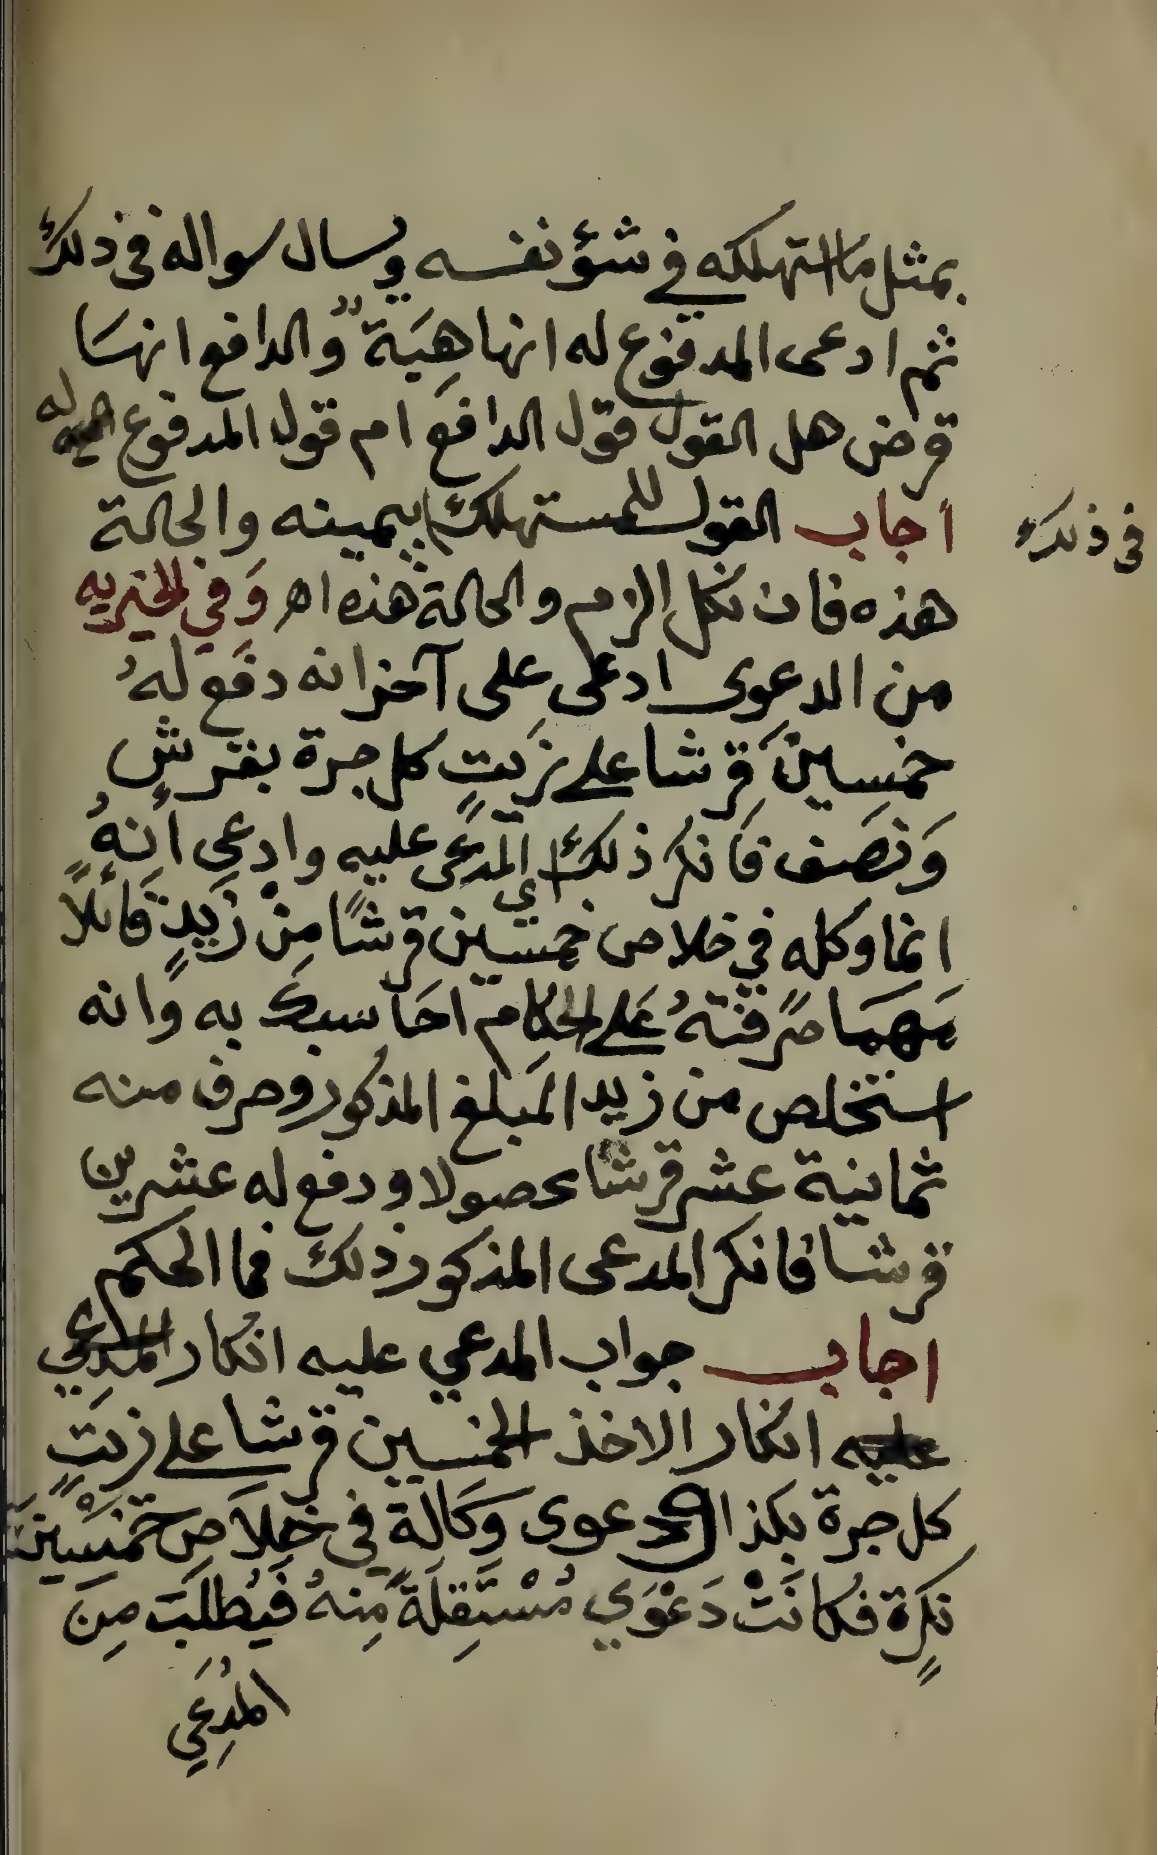 بمثل ما استهلكه في شؤ نفسه ويسال سواله في ذلك
ثم ادعى المدفوع له انها هِبَة وَالدافع انهَا
قرض هل القول قول الدافع ام قول المدفوع له
اجاب القول للمستهلك بيمينه والحالة
في ذلك
هذه فان نكل الزم والحالة هذه اهـ وَفي الخيريه
من الدعوى ادعى على آخر انه دفع لهُ
خمسينَ قرشا على زيتٍ كل جرة بقرشٍ
وَنصَف فَانكر ذلك اي المدعى عليه وادعى أنهُ
انما وكله في خلاص خمسين قرشًا مِنْ زَيدٍ قائلاً
مَهمَا صرفتهُ عَلى الحكام احَاسبكَ به وَانه
استخلص من زيد المَبلغ المذكور وصرف منه
ثمانية عشر قرشا محصولا ودفع له عشرين
قرشا فانكر المدعى المذكور ذلك فما الحكم
اجاب جواب المدعي عليه انكار المدعي
عليه انكار الاخذ الخمسين قرشا على زيتٍ
كل جرة بكذا دعوى وَكَالة في خِلاَصِ خمَسْينَ
نكِرَةٍ فكانَتْ دَعْوَي مُسْتَقِلَةً مِنهُ فَيُطلَبَ مِنَ
المُدِعَي